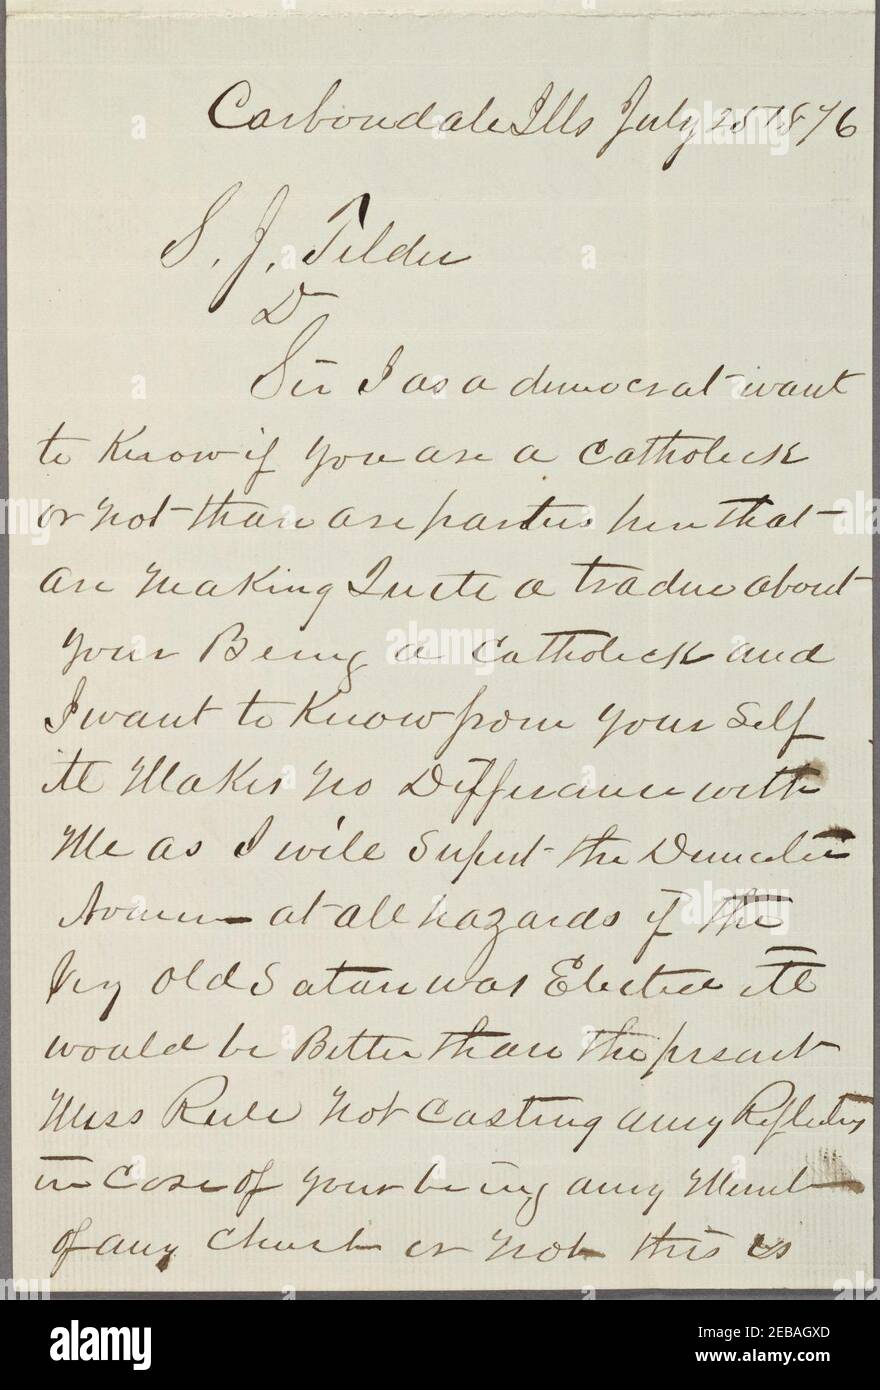 Carbondale Ills July 25 1876
S. J. Tilden
D
Sir I as a democrat want
to Know if you are a Catholick
or not thare are parties here that
are Making Quite a tradue about
your Being a Catholick and
I want to Know from your Self
itt Makes No Differance with
Me as I will Suport the
Nomine at all hazards if the
Very Old Satan was Elected itt
would be Better than the present
Miss Rule Not Casting any Reflections
in Case of your being any Member
of any Church or Not this is
alamy
Image ID: 2EBAGXD
www.alamy.com